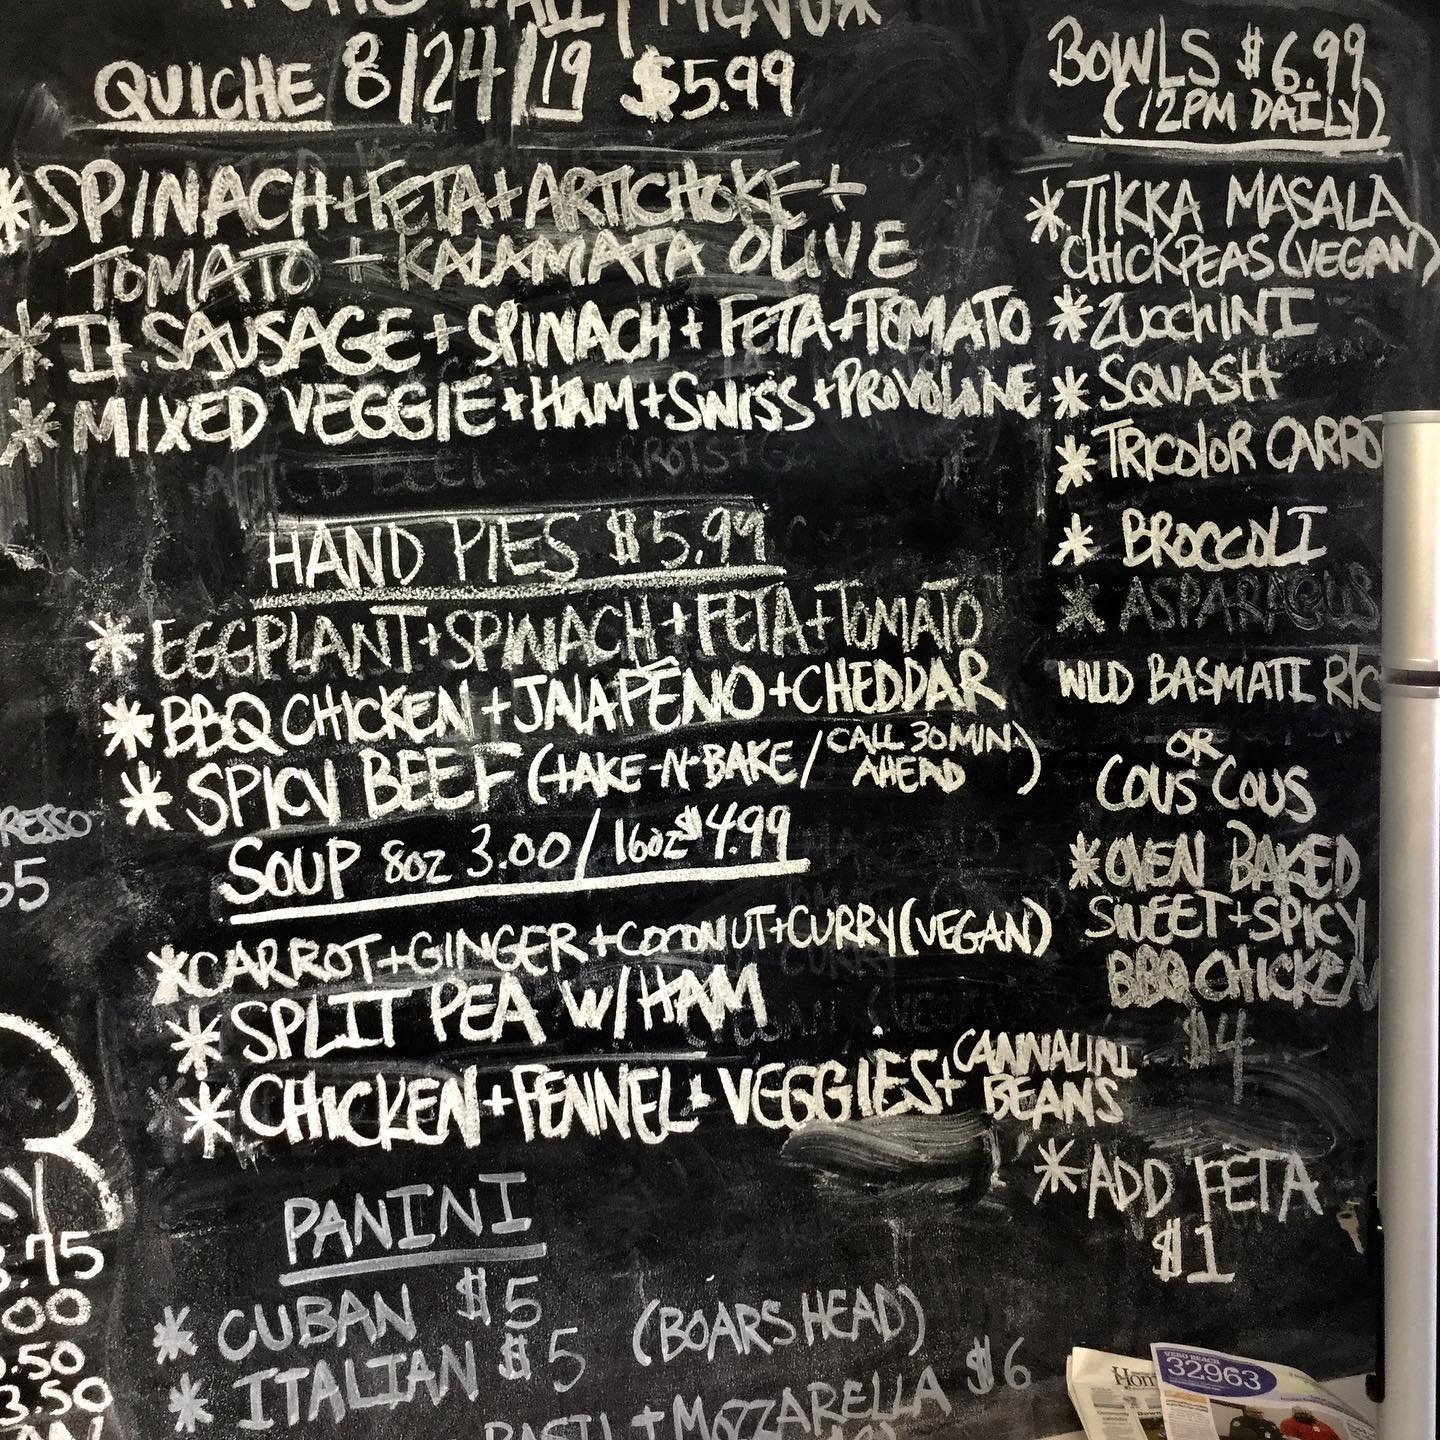 MENU*
QUICHE 8/24/19 $5.99
*SPINACH+FETA+ARTICHOKE+
TOMATO + KALAMATA OLIVE
*It. SAUSAGE + SPINACH + FETA+TOMATO
*MIXED VEGGIE+HAM+SWISS+PROVOLONE
HAND PIES $5.99
*EGGPLANT+SPINACH+FETA+TOMATO
*BBQ CHICKEN+JALAPEÑO+CHEDDAR
*SPICY BEEF (TAKE-N-BAKE/CALL 30MIN.
AHEAD)
SOUP 8oz 3.00/16oz $4.99
*CARROT+GINGER+COCONUT+CURRY(VEGAN)
*SPLIT PEA W/HAM
*CHICKEN+FENNEL+VEGGIES+CANNALINI
BEANS
PANINI
*CUBAN $5 (BOARS HEAD)
*ITALIAN $5
BASIL+MOZZARELLA $6
BOWLS $6.99
(12PM DAILY)
*TIKKA MASALA
CHICKPEAS(VEGAN)
*ZUCCHINI
*SQUASH
*TRICOLOR CARRO
*BROCCOLI
*ASPARAGUS
WILD BASMATI RIC
OR
COUS COUS
*OVEN BAKED
SWEET+SPICY
BBQ CHICKEN
$4
*ADD FETA
$1
RESSO
.75
00
.50
3.50
VERO BEACH
32963